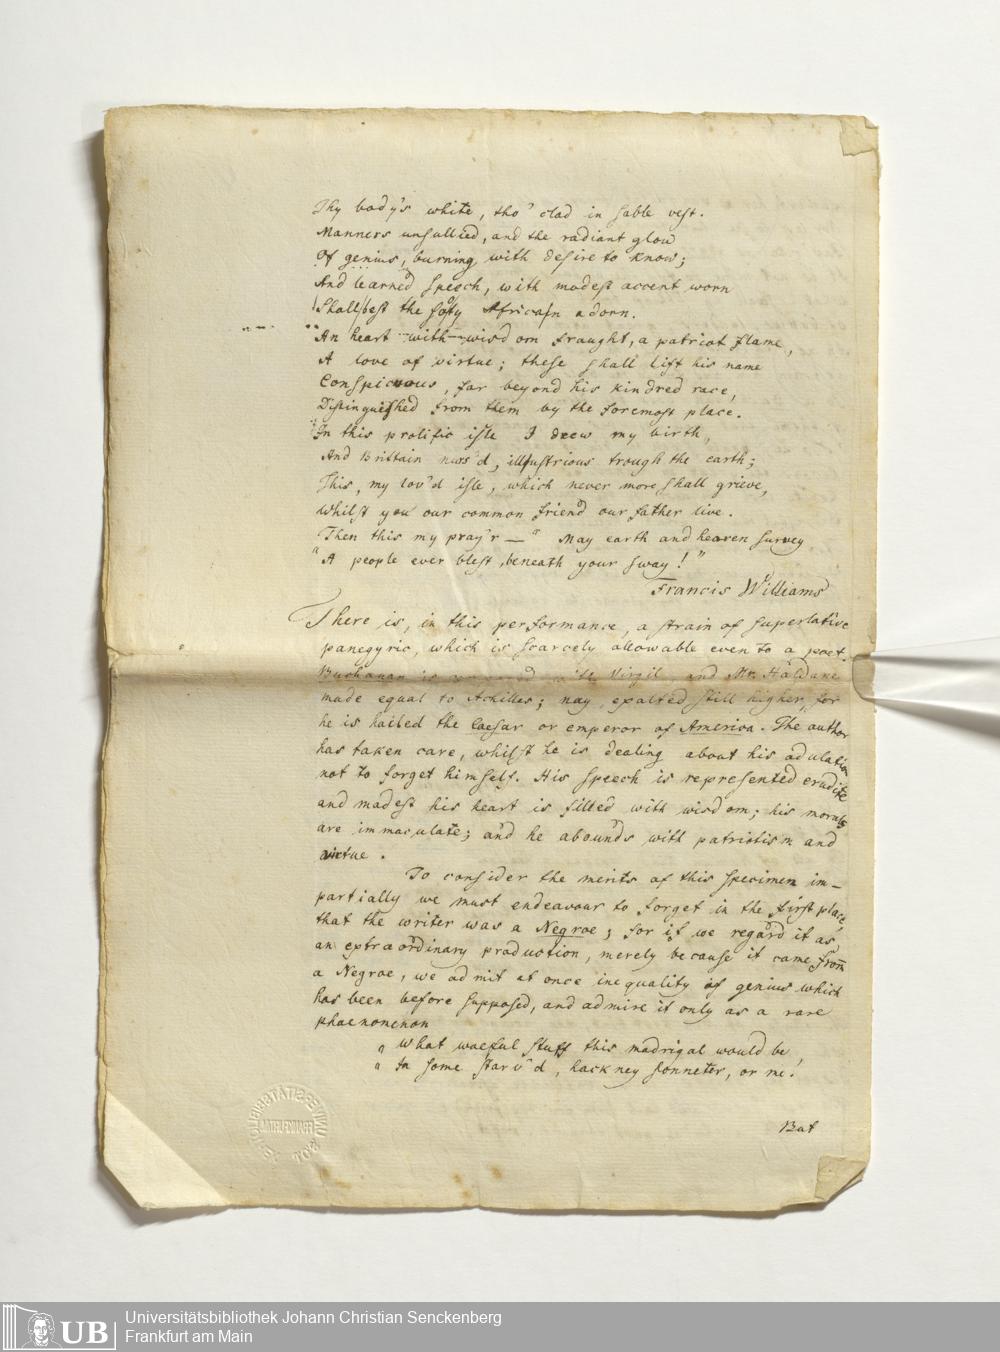 Thy body's white, tho' clad in sable vest.
Manners unsullied, and the radiant glow
Of genius, burning with desire to know;
And learned speech, with modest accent worn
Shall best the sooty African adorn.
An heart with wisdom fraught, a patriot flame,
A love of virtue; these shall lift his name
Conspicuous, far beyond his kindred race,
Distinguished from them by the foremost place.
In this prolific isle I drew my birth,
And Brittain nurs'd, illustrious trough the earth;
This, my lov'd isle, which never more shall grieve,
Whilst you our common friend our father live.
Then this my pray'r — " May earth and heaven survey
" A people ever blest, beneath your sway! "
Francis Williams
There is, in this performance, a strain of superlative
panegyric, which is scarcely allowable even to a poet.
Buchanan is compared with Virgil, and Mr. Haldane
made equal to Achilles; nay, exalted still higher, for
he is hailed the Caesar or emperor of America. The author
has taken care, whilst he is dealing about his adulation
not to forget himself. His speech is represented erudite
and modest his heart is filled with wisdom; his morals
are immaculate; and he abounds with patriotism and
virtue.
To consider the merits of this specimen im-
partially we must endeavour to forget in the first place,
that the writer was a Negroe; for if we regard it as
an extraordinary production, merely because it came from
a Negroe, we admit at once inequality of genius which
has been before supposed, and admire it only as a rare
phaenomenon
" What woeful stuff this madrigal would be,
" In some starv'd, hackney sonneter, or me!
But
UB
Universitätsbibliothek Johann Christian Senckenberg
Frankfurt am Main